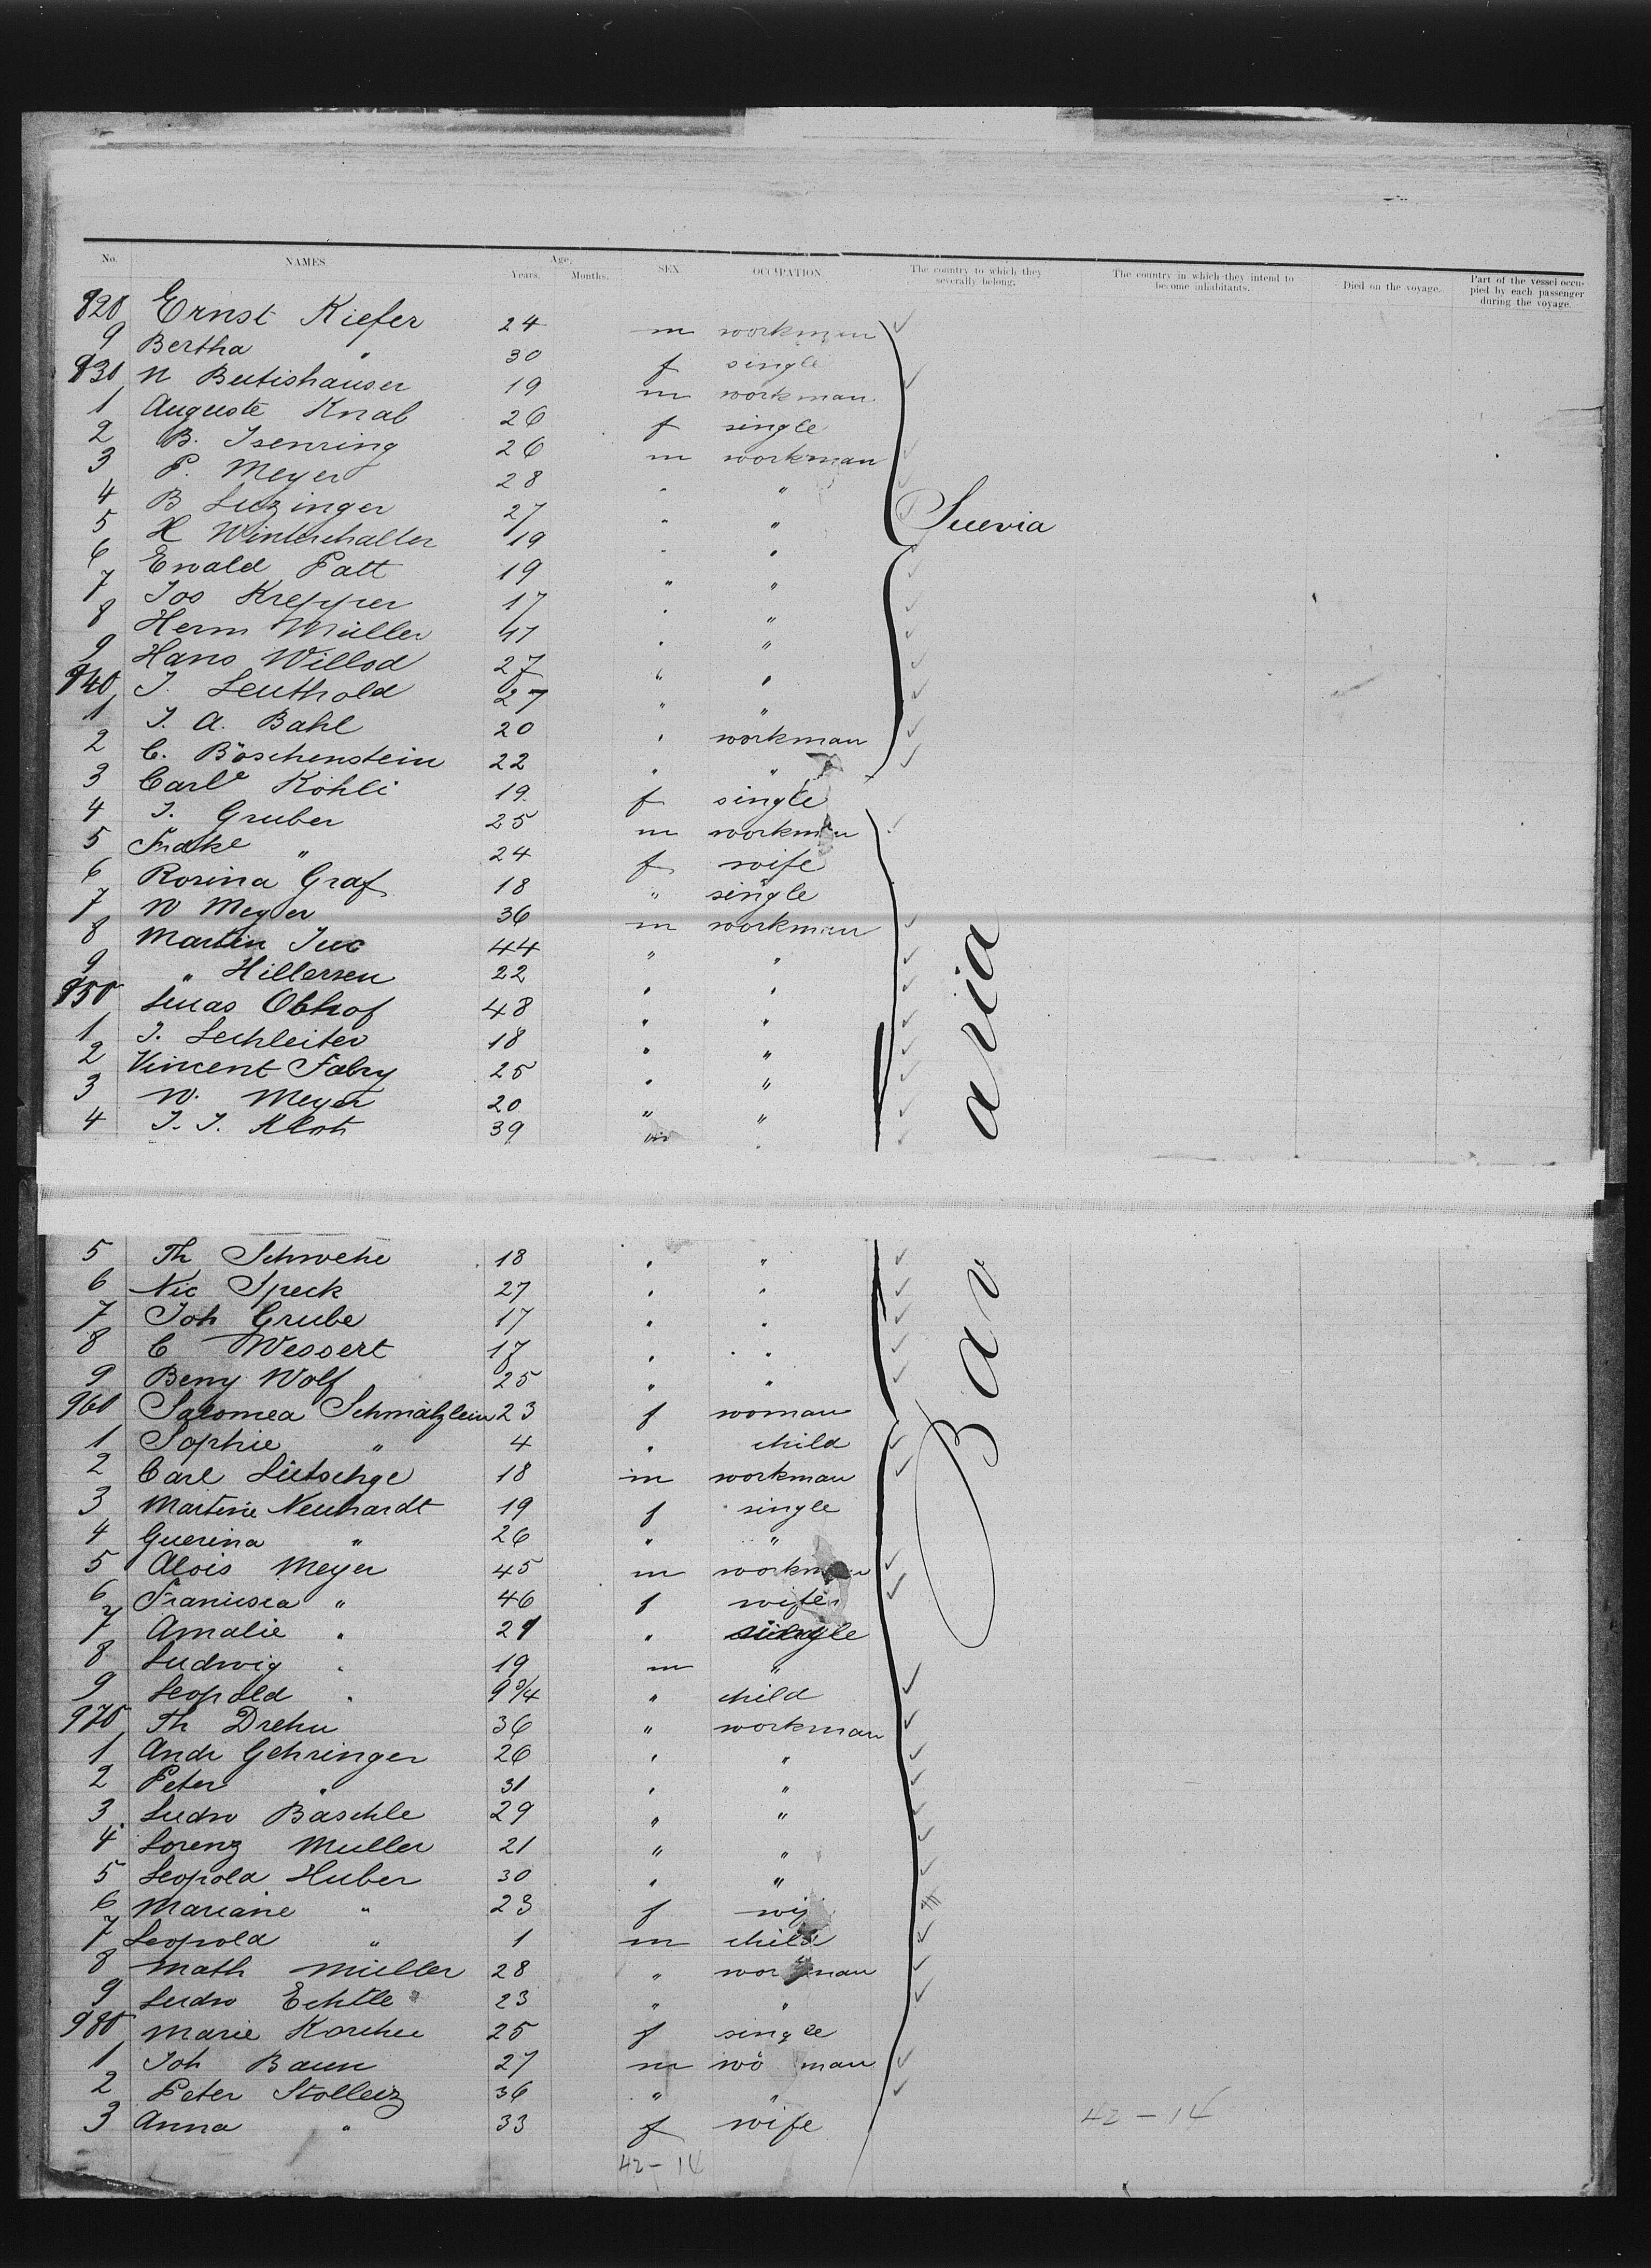 No. NAMES Age. Years. Months. SEX. OCCUPATION The country to which they severally belong. The country in which they intend to become inhabitants. Died on the voyage. Part of the vessel occupied by each passenger during the voyage.
928 Ernst Kiefer 24 m workman
9 Bertha " 30 f single
930 N Beutishauser 19 m workman
1 Auguste Knab 26 f single
2 B. Isenring 26 m workman
3 P. Meyer 28 " "
4 B Luzinger 27 " "
5 H Winterhalter 19 " "
6 Ewald Patt 19 " "
7 Jos Krepper 17 " "
8 Herm Müller 47 " "
9 Hans Willod 27 " "
940 J. Leuthold 27 " "
1 J. A. Bahl 20 " workman
2 C. Böschenstein 22 " "
3 Carle Kohli 19 f single
4 J. Gruber 25 m workman
5 " 24 f wife
6 Rosina Graf 18 " single
7 W Meyer 36 m workman
8 Martin 44 " "
9 " Hillersen 22 " "
950 Lucas Obhof 48 " "
1 J. Lechleiter 18 " "
2 Vincent Fabry 25 " "
3 W. Meyer 20 " "
4 J. J. Kloti 39 m "
Suevia
5 Th Schwehe 18 " "
6 Nic Speck 27 " "
7 Joh Grube 17 " "
8 C Wessert 17 " "
9 Beny Wolf 25 " "
960 Salomea Schmälzlein 23 f woman
1 Sophie " 4 " child
2 Carl Lütschge 18 m workman
3 Martine Neuhardt 19 f single
4 Guerina " 26 " "
5 Alois Meyer 45 m workman
6 Francisca " 46 f wife
7 Amalie " 21 " single
8 Ludwig " 19 m "
9 Leopold " 9 3/4 " child
970 Th Drehn 36 " workman
1 Andr Gehringer 26 " "
2 Peter " 31 " "
3 Ludw Baschle 29 " "
4 Lorenz Muller 21 " "
5 Leopold Huber 30 " "
6 Mariane " 23 f
7 Leopold " 1 m child
8 Math Müller 28 " workman
9 Ludw Echtle 23 " "
980 Marie Karcher 25 f single
1 Joh Baun 27 m wo man
2 Peter Stolleiz 36 " "
3 Anna " 33 f wife
Bavaria
42 - 14
42 - 14